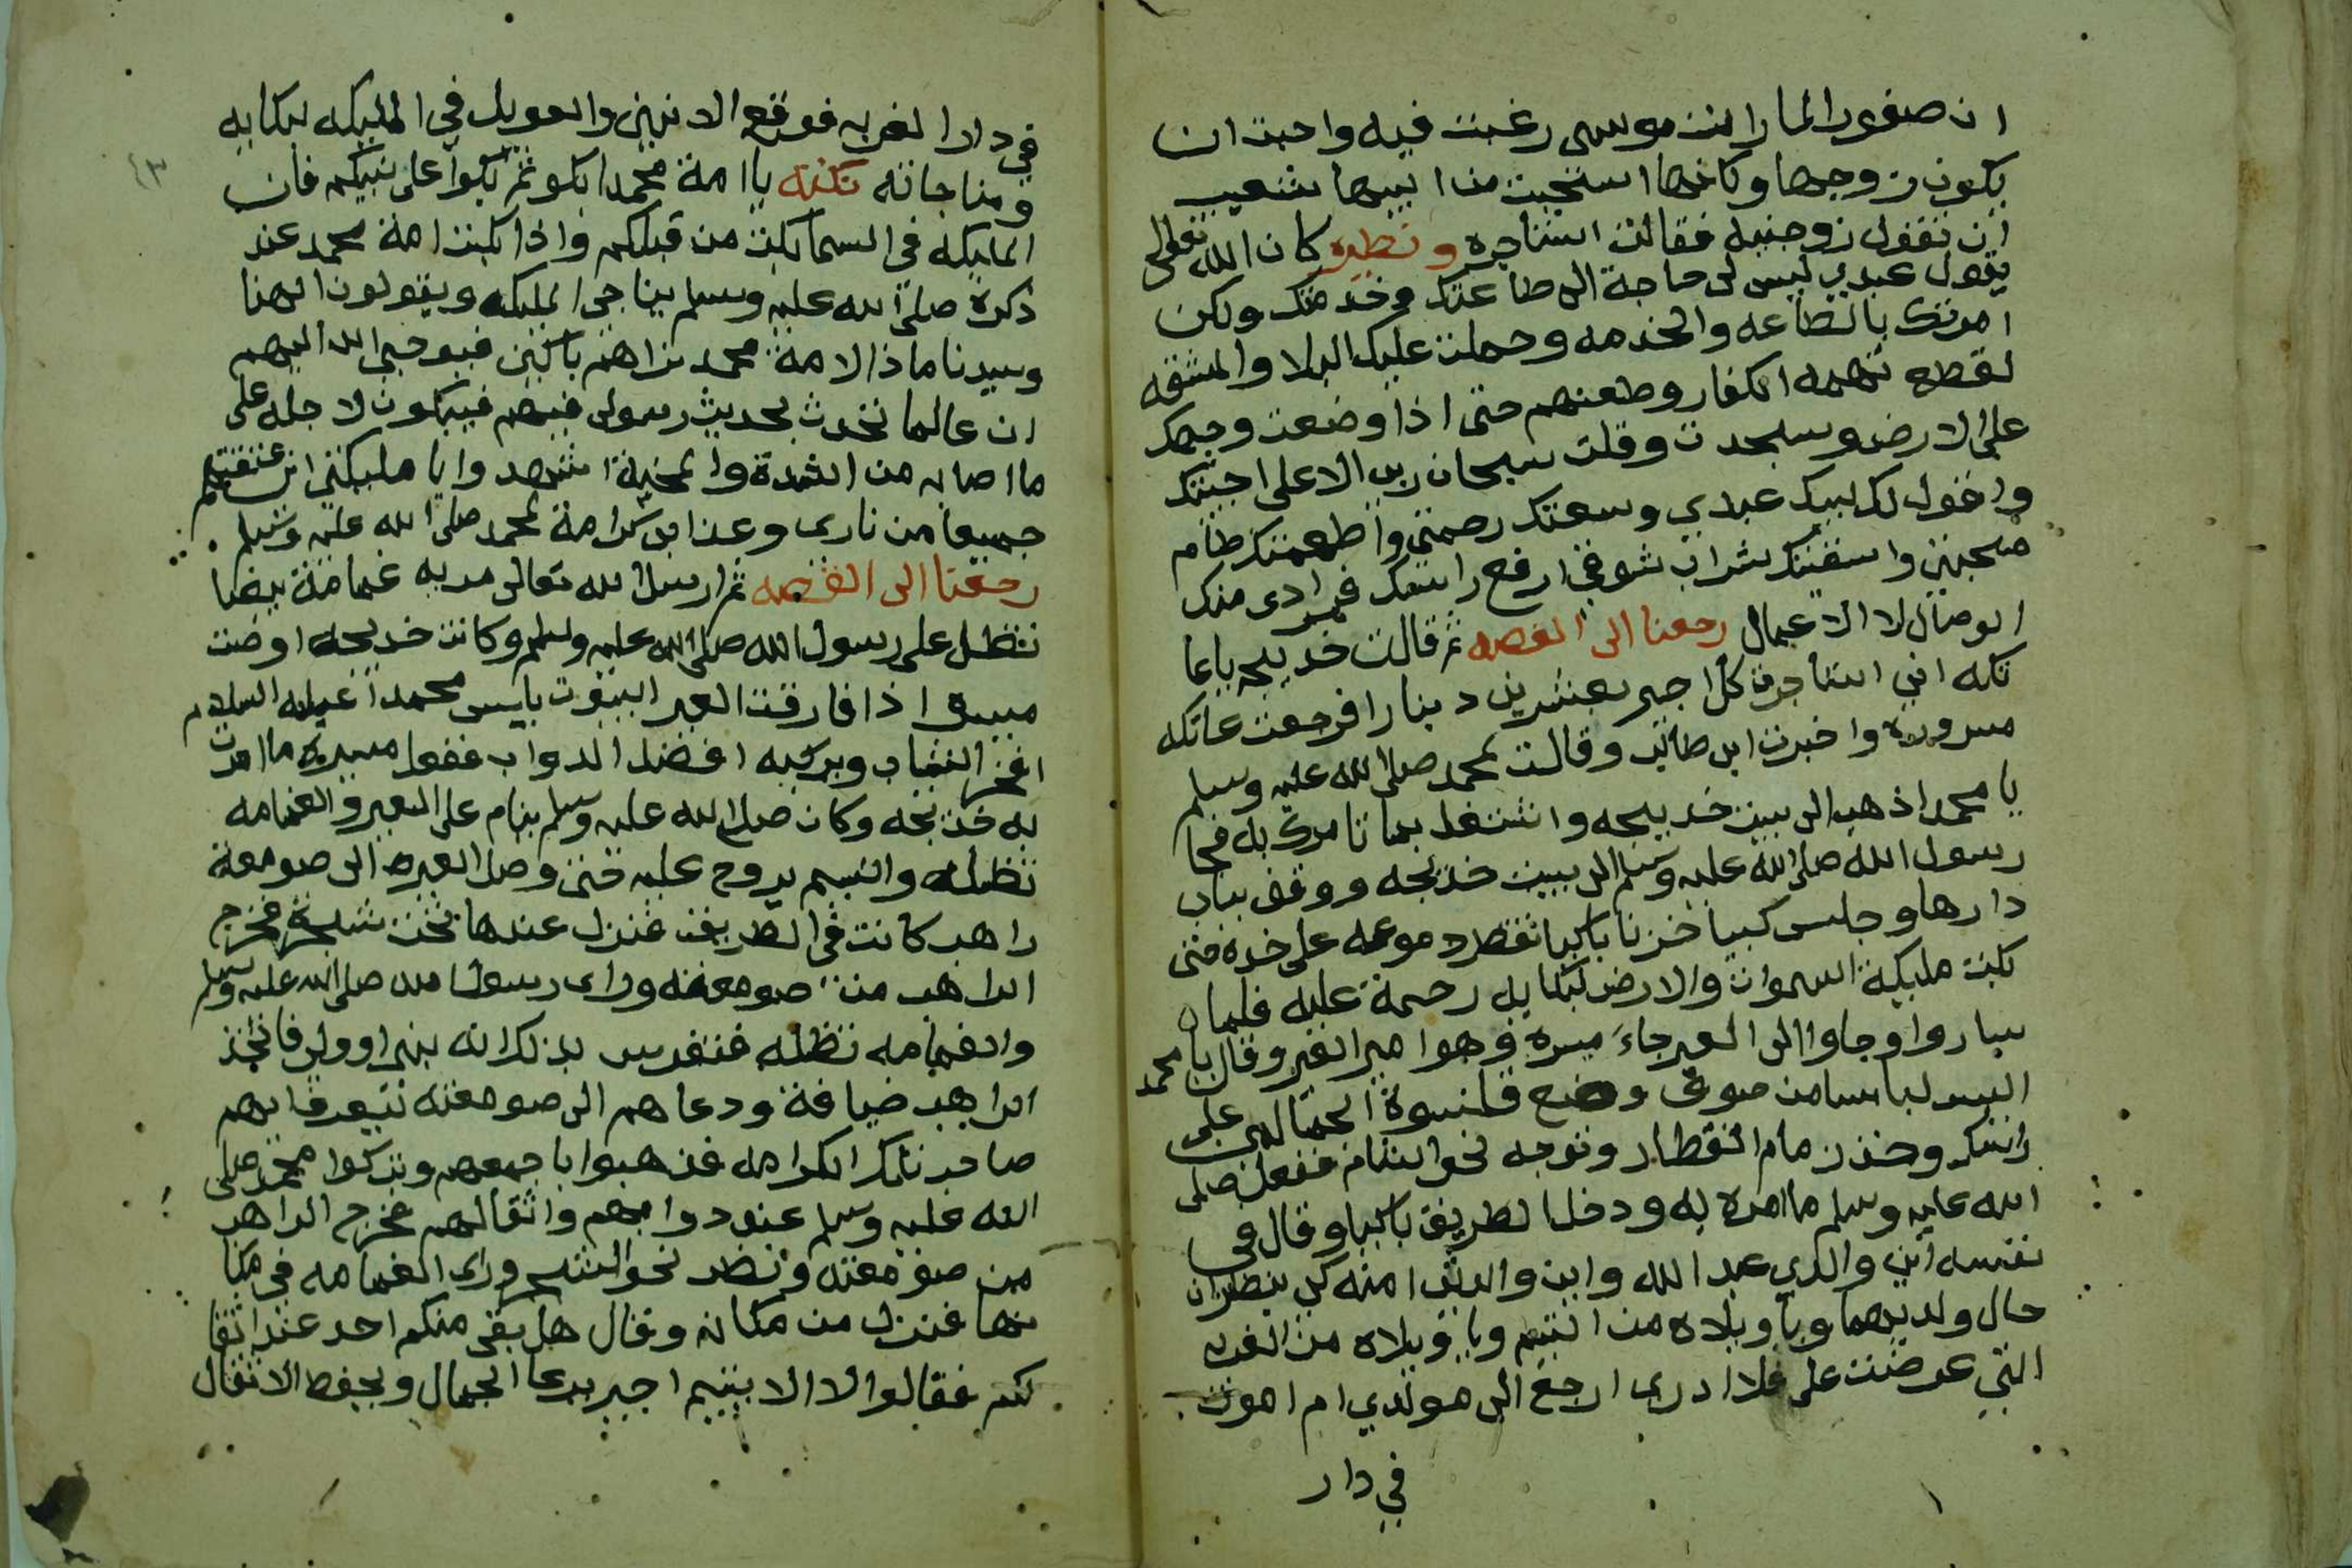 ان صفورا لما رات موسى رغبت فيه واحبت ان
يكون زوجها وكانها استحيت من ابيها شعيب
ان تقول زوجنيه فقالت استاجره ونظيره كان الله تعالى
يقول عبدي ليس لى حاجة الى طاعتك وخدمتك ولكن
امرتك بالطاعه والخدمه وحملت عليك البلا والمشقه
لقطع تهمه الكفار وطعنهم حتى اذا وضعت وجهك
على الارض وسجدت وقلت سبحان ربى الاعلى اجبتك
واقول لك لبيك عبدي وسعتك رحمتي واطعمتك طعام
محبتى واسقيتك شراب شوقي ارفع راسك فمرادى منك
الوصال لا الاعمال رجعنا الى القصه ثم قالت خديجه ياعا
تكه اني استاجرت كل اجير بعشرين دينارا فرجعت عاتكه
مسروره واخبرت ابى طالب وقالت لمحمد صلى الله عليه وسلم
يا محمد اذهب الى بيت خديجه واشتغل بما تامرك به فجا
رسول الله صلى الله عليه وسلم الى بيت خديجه ووقف بباب
دارها وجلس كيبا حزنا باكيا تقطر دموعه على خده حتى
بكت مليكة السموات والارض لبكايه رحمة عليه فلما
ساروا وجاوا الى العير جاء ميسره وهو امير العير وقال يا محمد
البس لباسا من صوف وضع قلنسوة الجمالين على
راسك وخذ زمام القطار وتوجه نحو الشام ففعل صلى
الله عليه وسلم ما امره به ودخل الطريق باكيا وقال في
نفسه اين والدي عبد الله واين والدتى امنه كى ينظران
حال ولديهما ويا ويلاه من اليتيم ويا ويلاه من الغربه
التي عرضت على فلا ادرى ارجع الى مولدي ام اموت
في دار
في دار الغربه فوقع الانين والعويل في المليكه لبكايه
ومناجاته نكته يا امة محمد ابكو ثم ابكوا على نبيكم فان
المليكه فى السما بكت من قبلكم واذا بكت امة محمد عند
ذكره صلى الله عليه وسلم يناجى المليكه ويقولون الهنا
وسيدنا ماذا لامة محمد نراهم باكين فيوحى الله اليهم
ان عالما تحدث بحديث رسولى فيهم فيبكون لاجله على
ما اصابه من الشدة والمحنة اشهدوا يا مليكتي انى عتقتهم
جميعا من نارى وعذابى كرامة لمحمد صلى الله عليه وسلم
رجعنا الى القصه ثم ارسل الله تعالى مدبه غمامة بيضا
تظل على رسول الله صلى الله عليه وسلم وكانت خديجه اوصت
ميسره اذا فارقت العير البيوت يلبس محمدا عليه السلام
افخر الثياب ويركبه افضل الدواب ففعل ميسره ما امرت
به خديجه وكان صلى الله عليه وسلم ينام على البعير والغمامه
تظله والنسيم يروح عليه حتى وصل العير الى صومعة
راهب كانت في الطريق فنزل عندها تحت شجرة فخرج
الراهب من صومعته وراى رسول الله صلى الله عليه وسلم
والغمامه تظله فتفرس بذلك انه نبى او ولى فاتخذ
الراهب ضيافة ودعاهم الى صومعته ليعرف ايهم
صاحب تلك الكرامه فذهبوا باجمعهم وتركوا محمد صلى
الله عليه وسلم عند دوابهم واثقالهم فخرج الراهب
من صومعته ونظر نحو الشجره وراى الغمامه في مكا
نها فنزل من مكانه وقال هل بقى منكم احد عند اثقا
لكم فقالوا لا الا يتيم اجير يرعا الجمال ويحفظ الاثقال
٤٣